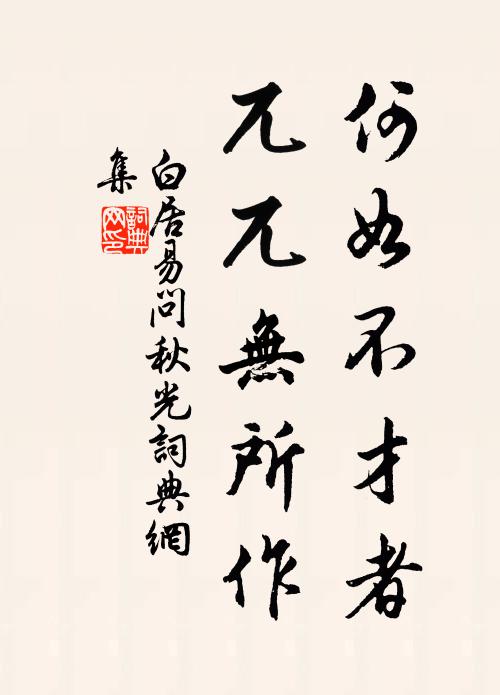 何如不才者
兀兀無所作
白居易問秋光詞典網
集
詞典
网印